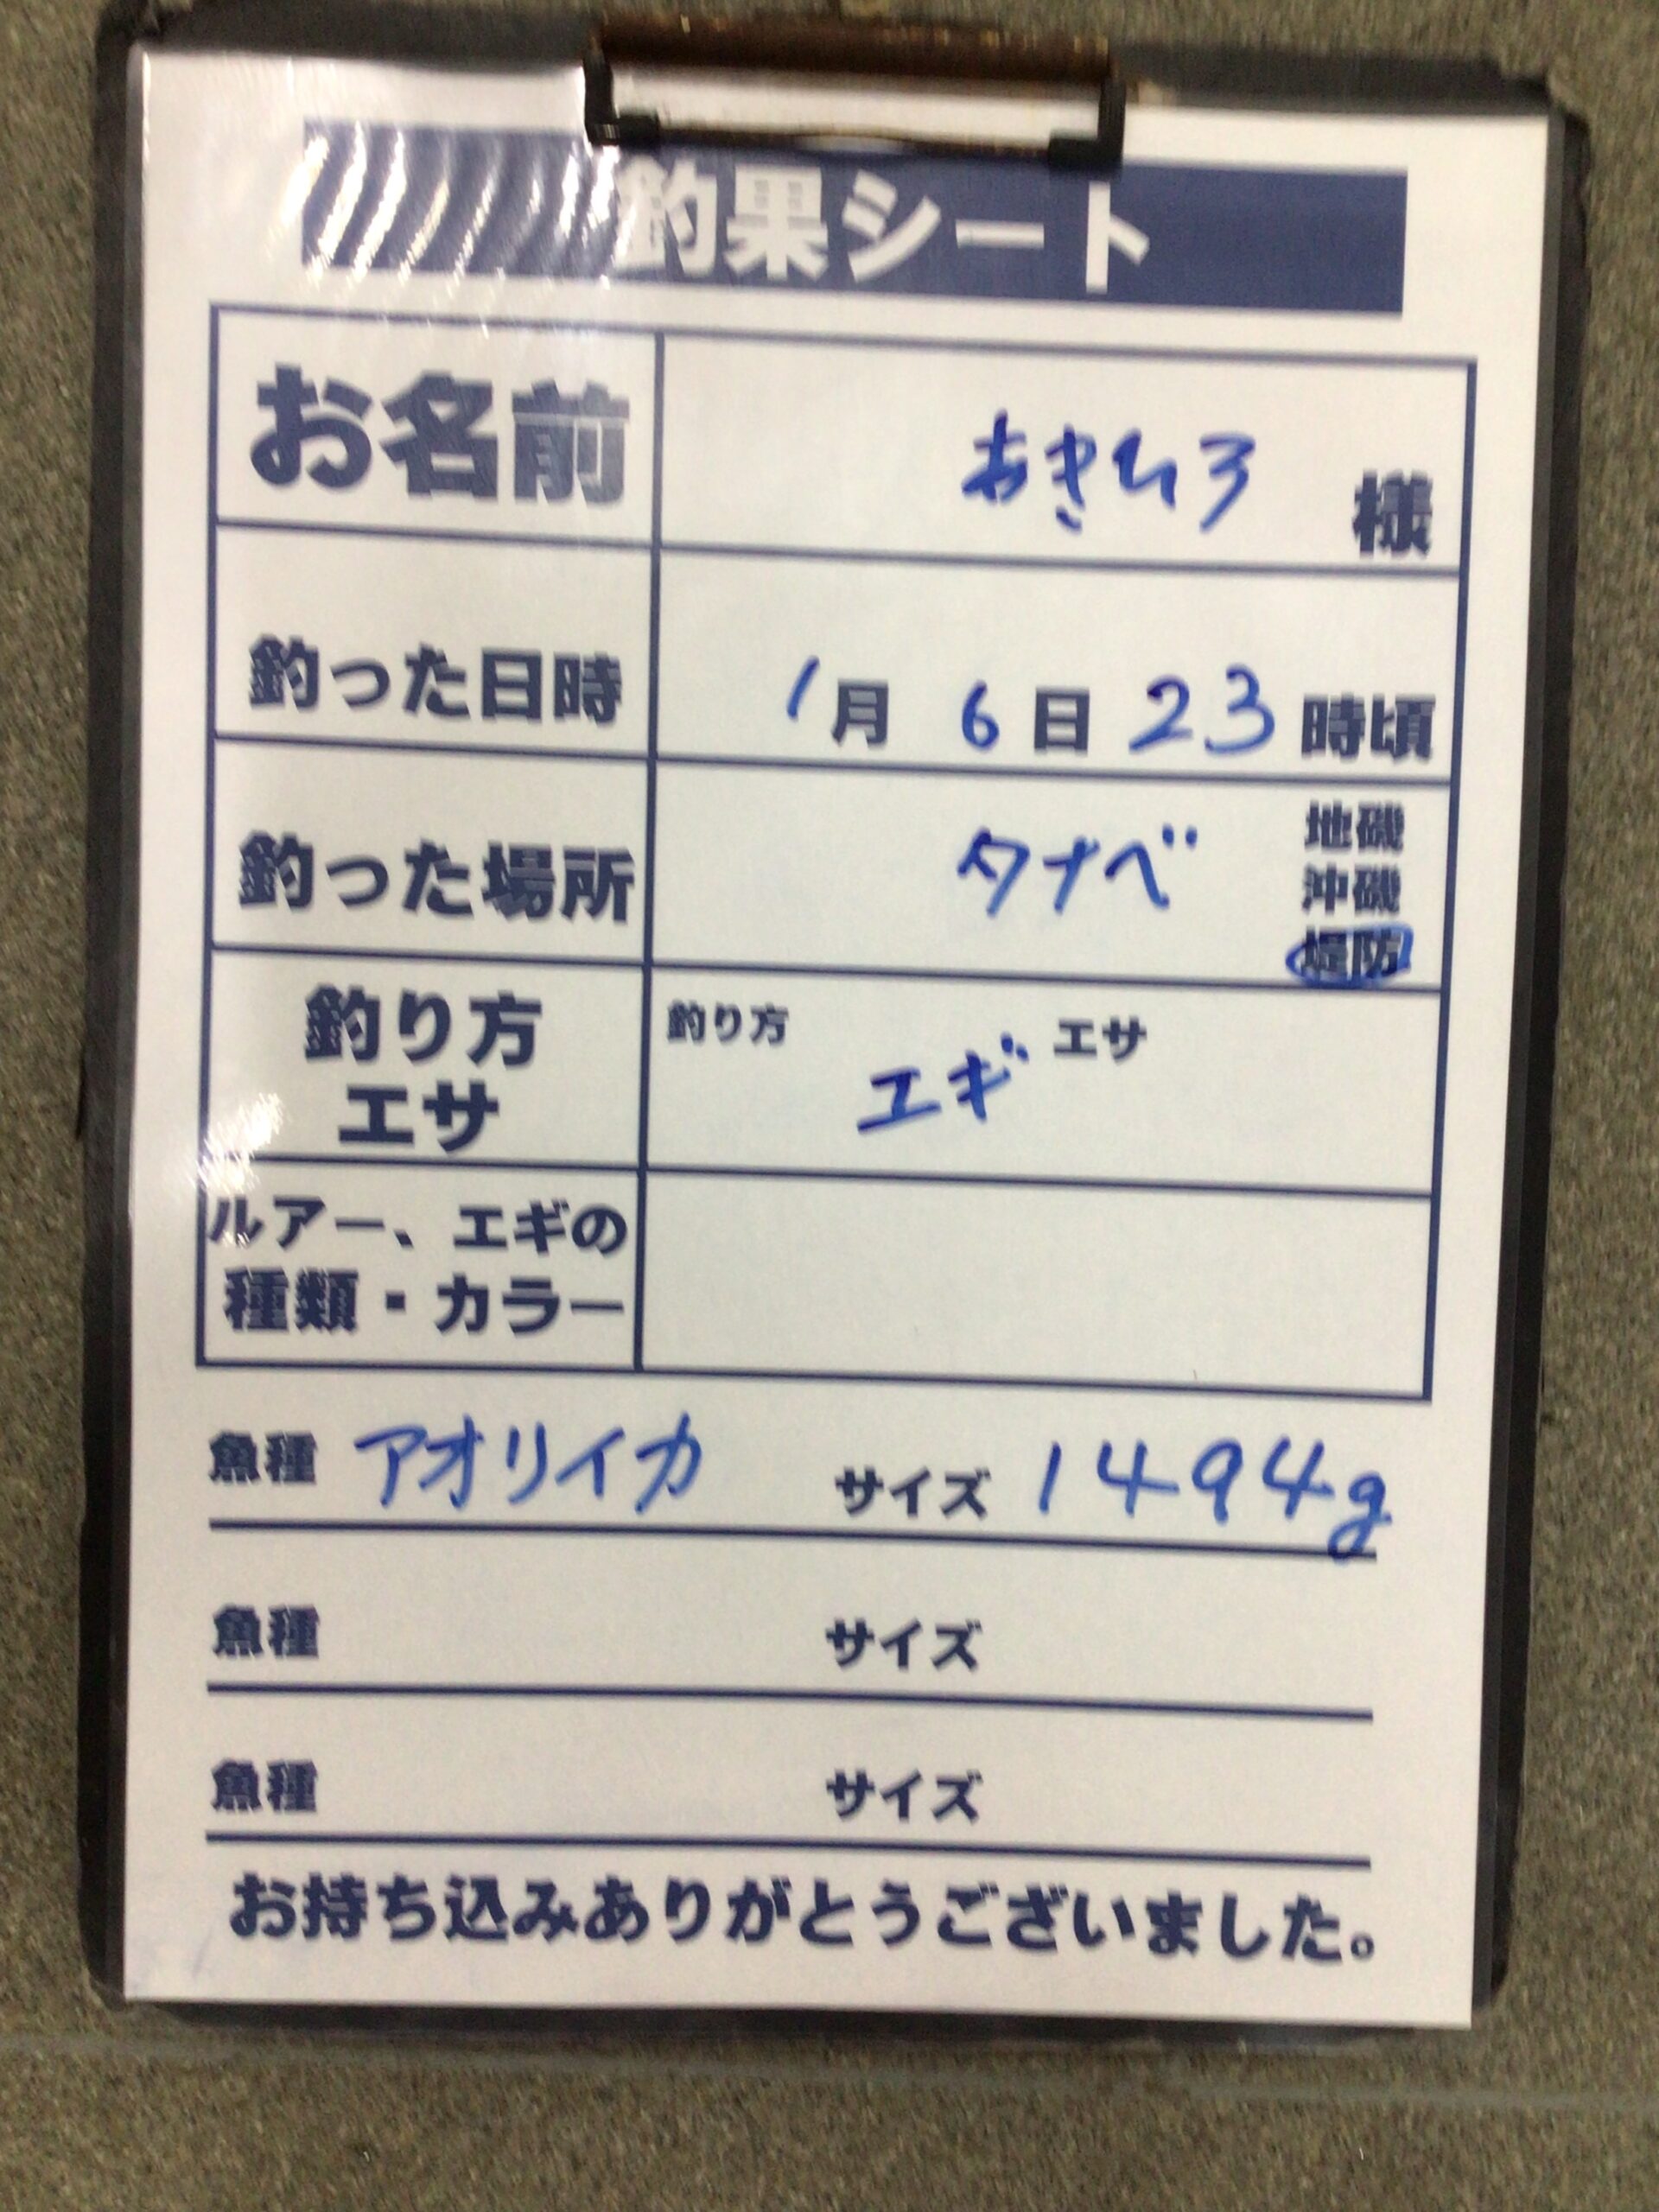 釣果シート
お名前 あきひろ 様
釣った日時 1月 6日 23時頃
釣った場所 タナベ 地磯
沖磯
堤防
釣り方
エサ
釣り方 エサ
エギ
ルアー、エギの
種類・カラー
魚種 アオリイカ サイズ 1494g
魚種 サイズ
魚種 サイズ
お持ち込みありがとうございました。